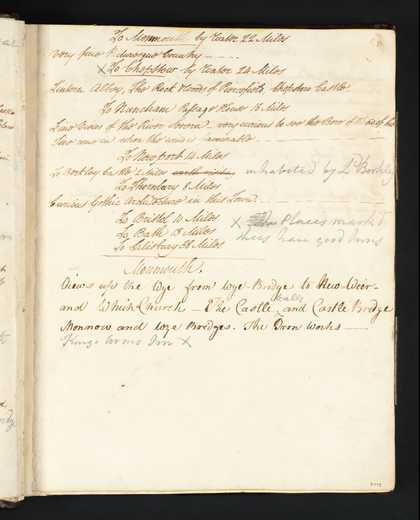 To Monmouth by Water 22 Miles
Very fine Picturesque Country
x To Chepstow by Water 24 Miles
Tintern Abbey, The Rock Woods of Piercefield, Chepstow Castle
To Passage House 15 Miles
Fine Views of the River Severn very curious to see the Bore of the
To Newport 14 Miles
To Berkley Castle 2 Miles inhabited by Ld Berkley
To Thornbury 8 Miles
Curious Gothic Architecture in this Town
To Bristol 10 Miles
x Places mark'd
To Bath 13 Miles
thus have good Inns
To Salisbury 38 Miles
Monmouth.
Views up the Wye from Wye-Bridge to New Weir
and Whitchurch - The Castle and Castle Bridge
Monnow and Wye Bridges. The Iron Works
Kings Arms Inn x